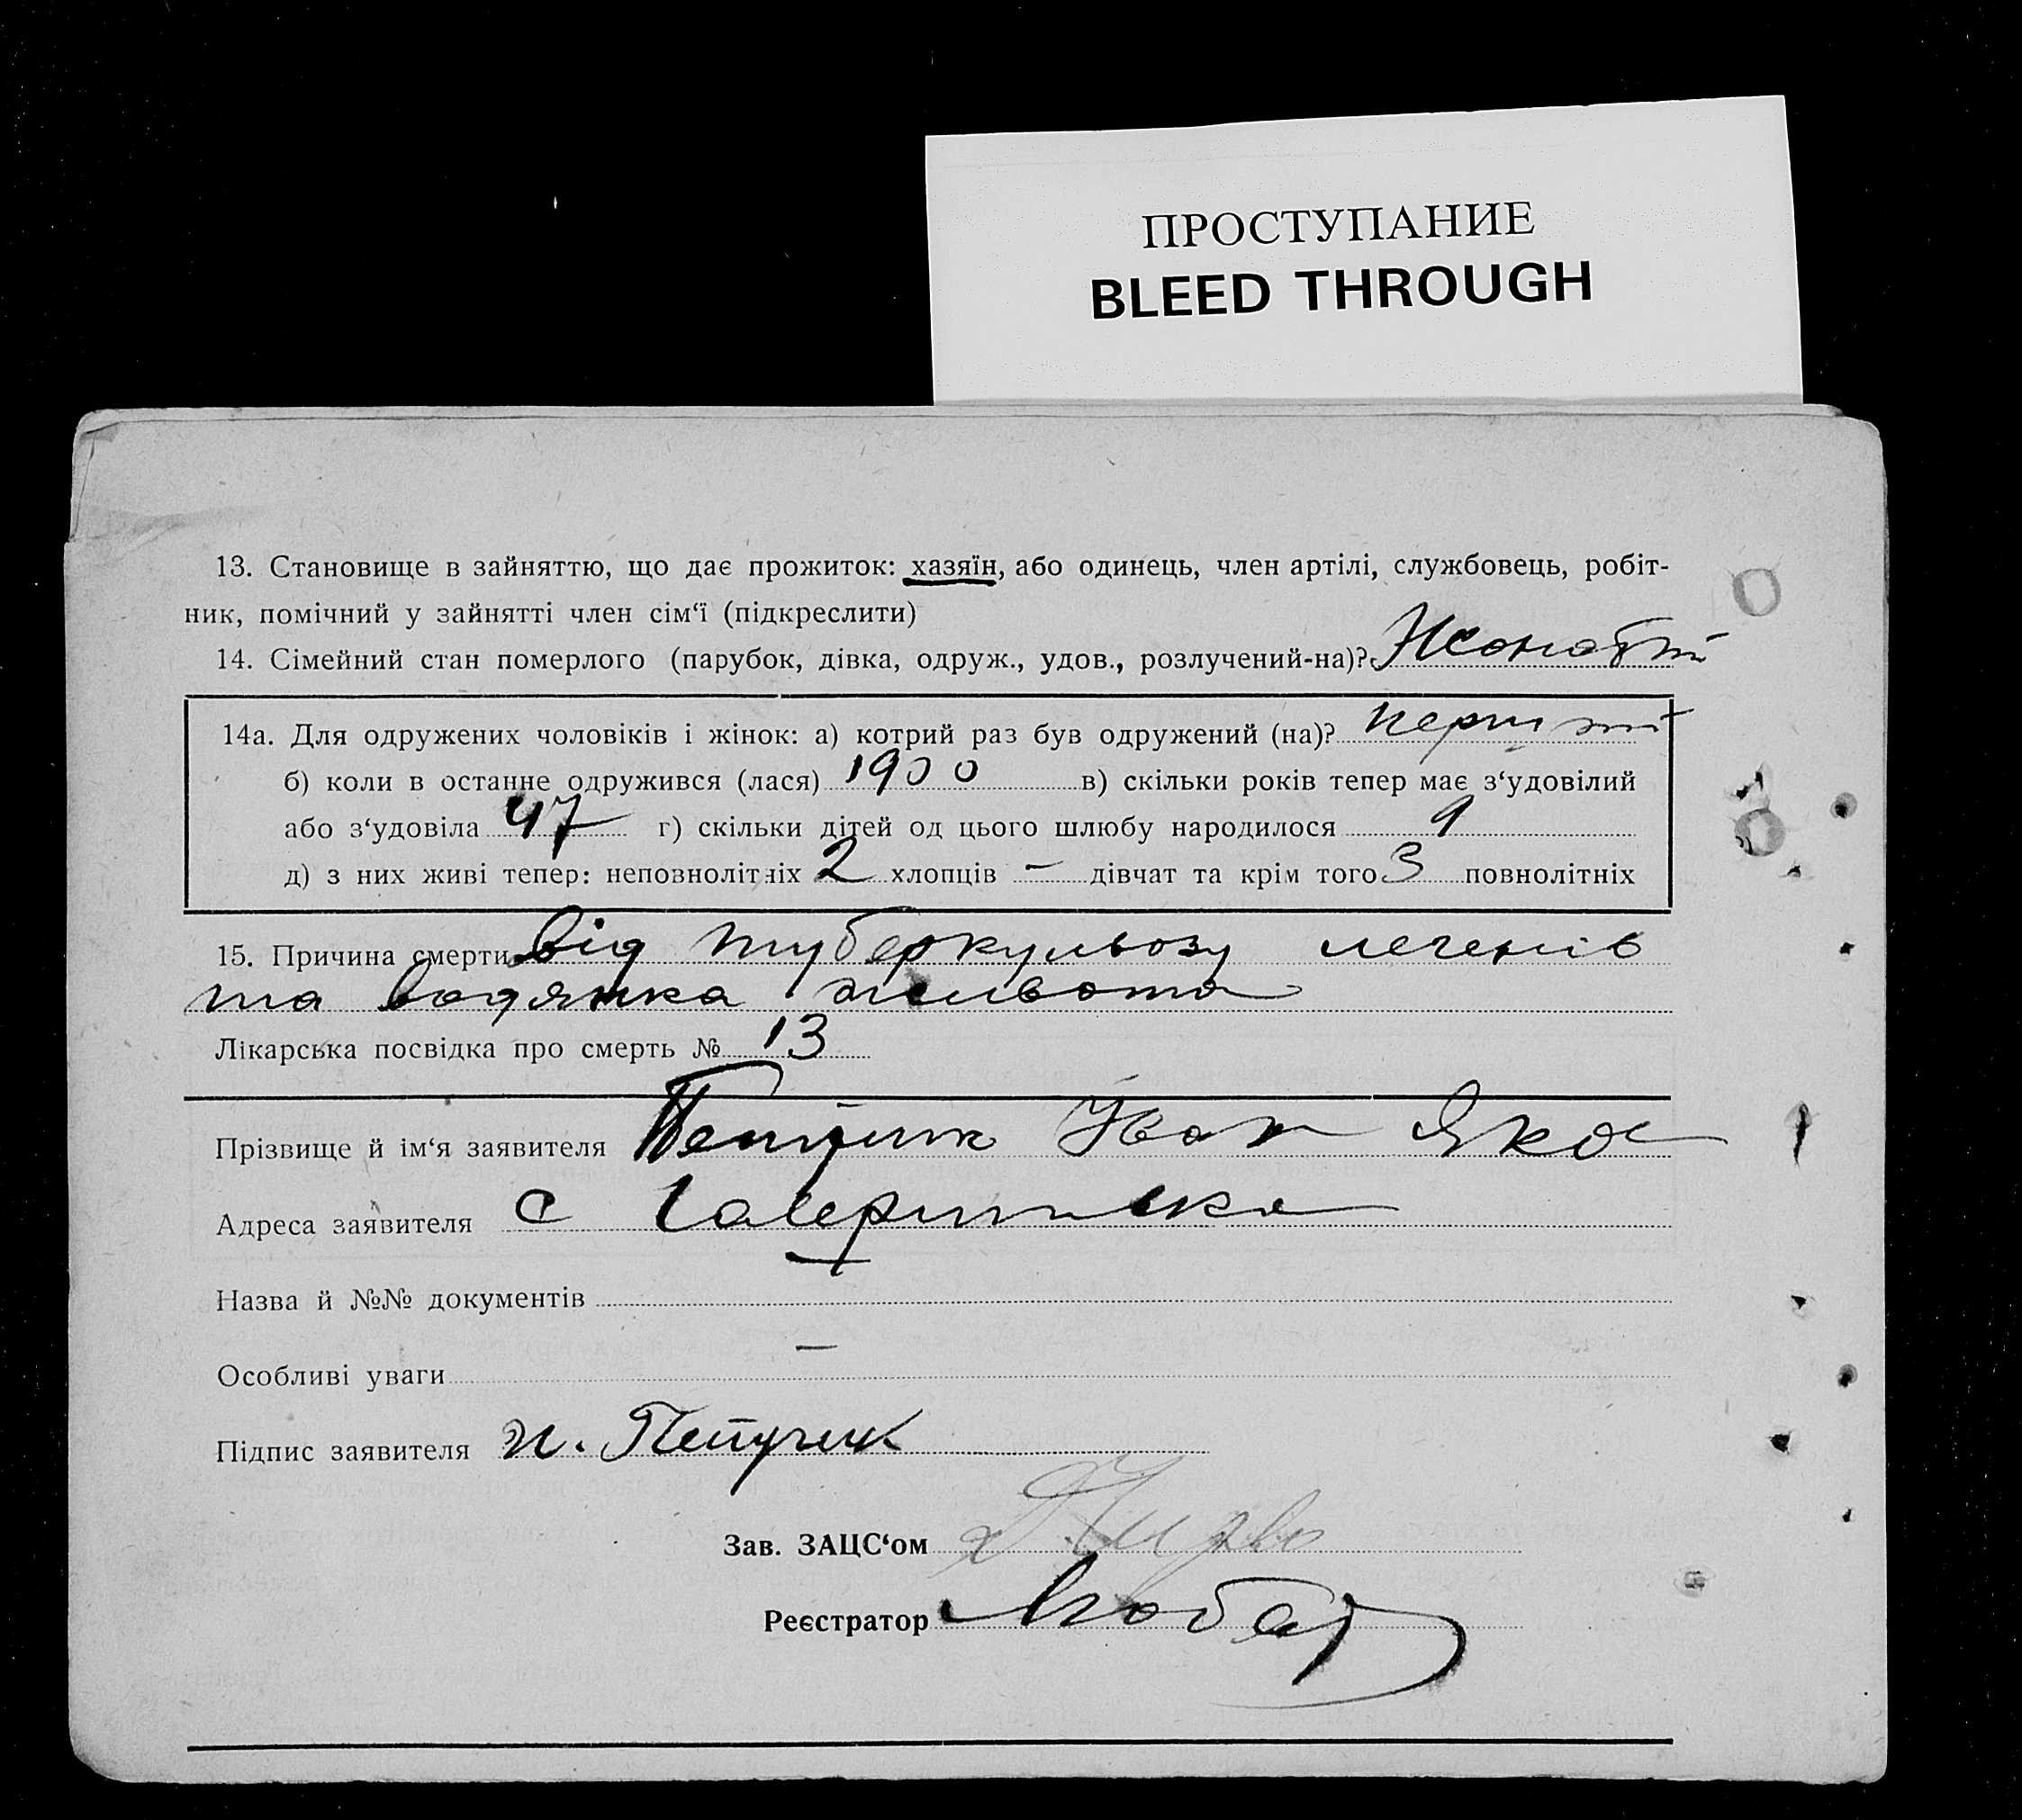 ПРОСТУПАНИЕ
BLEED THROUGH
13. Становище в зайняттю, що дає прожиток: хазяїн, або одинець, член артілі, службовець, робіт-
ник, помічний у зайнятті член сім‘ї (підкреслити)
14. Сімейний стан померлого (парубок, дівка, одруж., удов., розлучений-на)? Жонатий
14а. Для одружених чоловіків і жінок: а) котрий раз був одружений (на)?
б) коли в останне одружився (лася) 1900 в) скільки років тепер має з‘удовілий
або з‘удовіла 47 г) скільки дітей од цього шлюбу народилося 9
д) з них живі тепер: неповнолітніх 2 хлопців — дівчат та крім того 3 повнолітніх
15. Причина смерти від туберкульозу легенів
та водянка живота
Лікарська посвідка про смерть № 13
Прізвище й ім‘я заявителя Іван Яков
Адреса заявителя с
Назва й №№ документів —
Особливі уваги —
Підпис заявителя И.
Зав. ЗАЦС‘ом
Реєстратор